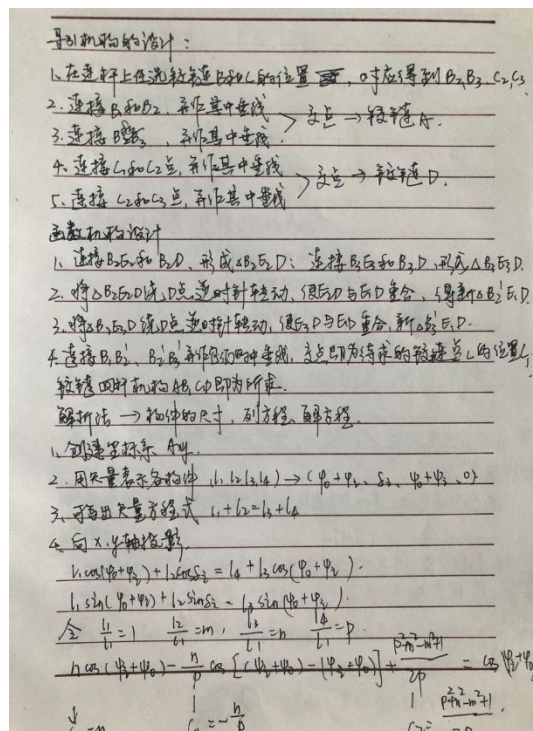 导引机构的设计：
1、在连杆上任选铰链B和C的位置，对应得到B2、B3、C2、C3
2. 连接B1和B2，并作其中垂线
3. 连接B2B3，并作其中垂线. 〉交点→铰链A.
4. 连接C1和C2点，并作其中垂线
5. 连接C2和C3点，并作其中垂线 〉交点→铰链D.
函数机构设计
1. 连接B2E2和B2D，形成△B2E2D；连接B3E3和B3D，形成△B3E3D.
2. 将△B2E2D绕D点逆时针转动，使E2D与E1D重合，得新△B2'E1D.
3. 将△B3E3D绕D点逆时针转动，使E3D与E1D重合，新△B3'E1D.
4. 连接B1B2'、B2'B3'并作它们的中垂线，交点即为待求的铰链点C的位置C1
铰链四杆机构ABCD即为所求.
解析法→构件的尺寸，列方程、解方程.
1、创建坐标系 Axy.
2. 用矢量表示各构件（l1 l2 l3 l4）→（φ0+φi、δi、ψ0+ψi、0）
3、可写出矢量方程式 l1+l2=l3+l4
4. 向x.y轴投影.
l1cos(φ0+φi)+l2cosδi=l4+l3cos(ψ0+ψi).
l1sin(φ0+φi)+l2sinδi=l3sin(ψ0+ψi).
令 l1/l1=1 l2/l1=m, l3/l1=n l4/l1=p.
ncos(ψi+ψ0)-n/p cos[(ψi+ψ0)-(φi+φ0)]+(p²+n²-m²+1)/2p=cos(φi+φ0
=-n/p p²+n²-m²+1